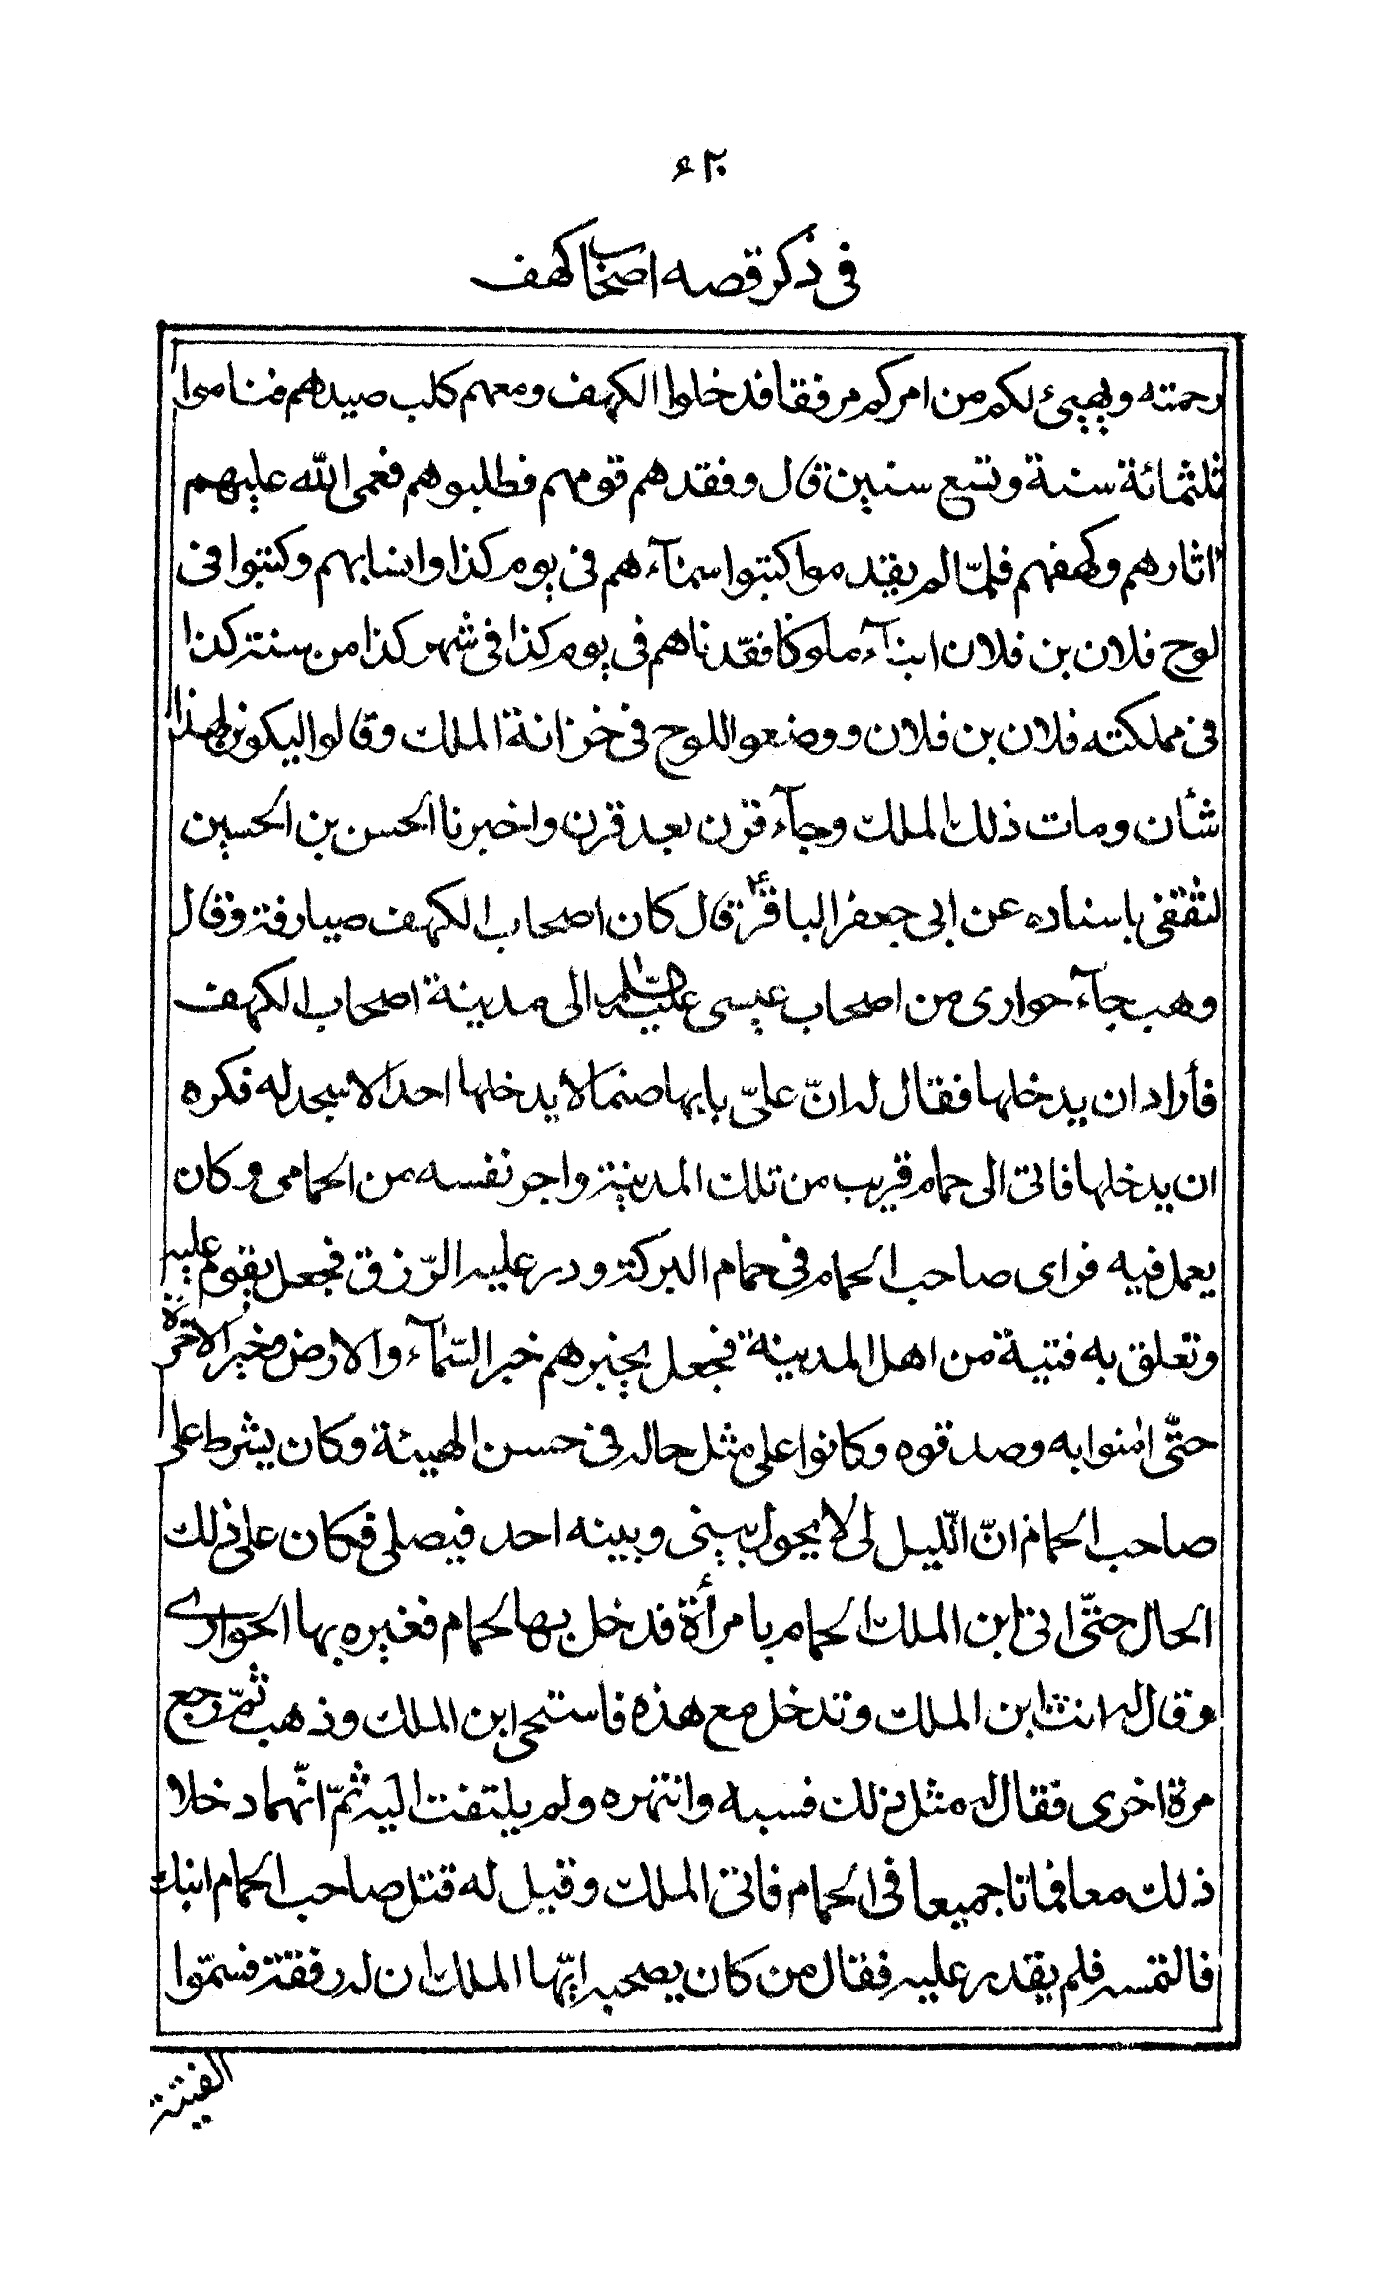 ٦٢٠
في ذكر قصه اصحاب كهف
رحمته ويهيئ لكم من امركم مرفقا فدخلوا الكهف ومعهم كلب صيدهم فناموا
ثلثمائة سنة وتسع سنين قال وفقدهم قومهم فطلبوهم فعمى الله عليهم
اثارهم وكهفهم فلمّا لم يقدموا كتبوا اسمآءهم في يوم كذا وانسابهم وكتبوا في
لوح فلان بن فلان ابنآء ملوكنا فقدناهم في يوم كذا في شهر كذا من سنة كذا
في مملكته فلان بن فلان ووضعوا اللوح في خزانة الملك وقالوا ليكونن لهذا
شأن ومات ذلك الملك وجآء قرن بعد قرن واخبرنا الحسن بن الحسين
لثقفي باسناده عن ابي جعفر الباقرؑ قال كان اصحاب الكهف صيارفة وقال
وهب جآء حواري من اصحاب عيسى عليه السّلم الى مدينة اصحاب الكهف
فأراد ان يدخلها فقال له انّ عليّ بابها صنما لا يدخلها احد الا سجد له فكره
ان يدخلها فاتى الى حمام قريب من تلك المدينة واجر نفسه من الحمامي وكان
يعمل فيه فراى صاحب الحمام في حمام البركة ودر عليه الرّزق فجعل يقوم عليه
وتعلق به فتية من اهل المدينة فجعل يخبرهم خبر السّمآء والارض وخبر الاخرة
حتّى امنوا به وصدقوه وكانوا على مثل حاله في حسن الهيئة وكان يشرط على
صاحب الحمام انّ اللّيل لي لا يحول بيني وبينه احد فيصلي فكان على ذلك
الحال حتّى اتى ابن الملك الحمام بامرأة فدخل بها الحمام فغيره بها الحواري
وقال له انت ابن الملك وتدخل مع هذه فاستحى ابن الملك وذهب ثمّ رجع
مرة اخرى فقال له مثل ذلك فسبه وانتهره ولم يلتفت اليه ثمّ انّهما دخلا
ذلك معا فماتا جميعا في الحمام فاتى الملك وقيل له قتل صاحب الحمام ابنك
فالتمسه فلم يقدر عليه فقال من كان يصحبه ايّها الملك ان له رفقة فسمّوا
الفتية